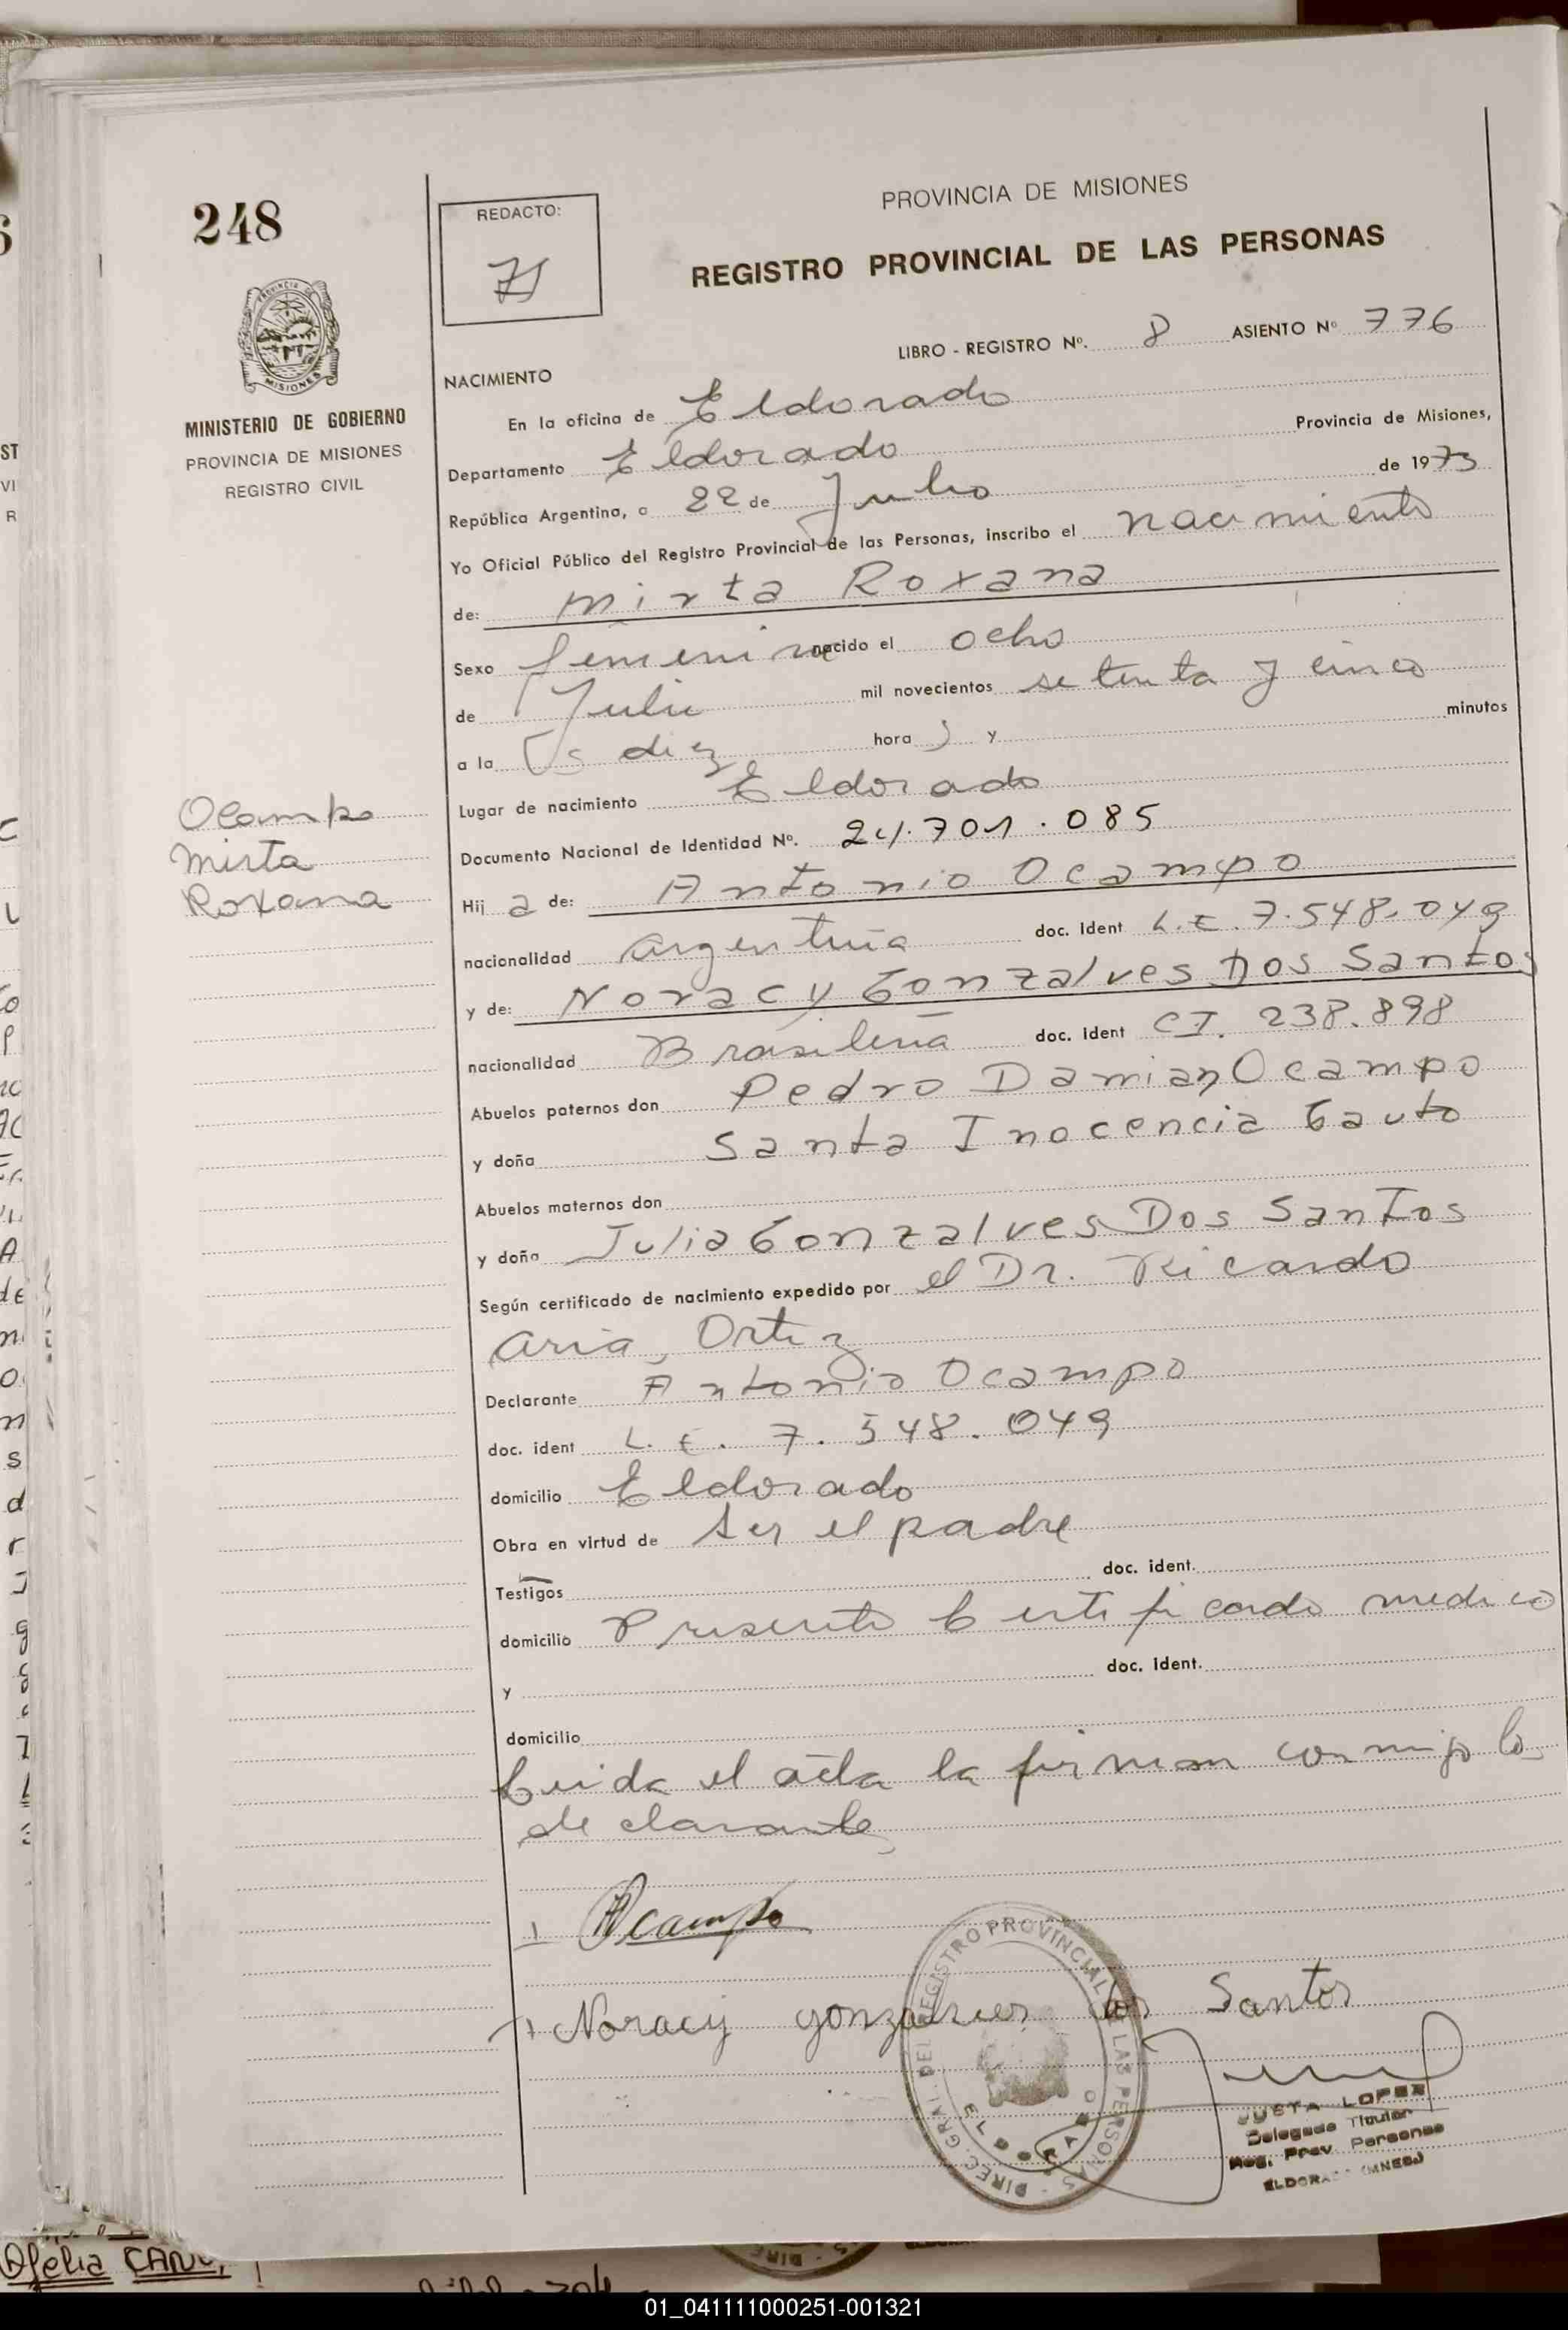 248
REDACTO:
PROVINCIA DE MISIONES
REGISTRO PROVINCIAL DE LAS PERSONAS
PROVINCIA DE
MISIONES
MINISTERIO DE GOBIERNO
PROVINCIA DE MISIONES
REGISTRO CIVIL
LIBRO - REGISTRO Nº. 8 ASIENTO Nº 776
NACIMIENTO
En la oficina de Eldorado
Departamento Eldorado Provincia de Misiones,
República Argentina, a 22 de Julio de 1975
Yo Oficial Público del Registro Provincial de las Personas, inscribo el nacimiento
de: Mirta Roxana
Sexo femenino nacido el ocho
de Julio mil novecientos setenta y cinco
a la s diez hora s y minutos
Lugar de nacimiento Eldorado
Documento Nacional de Identidad Nº. 24.701.085
Ocampo
Mirta
Roxana
Hij a de: Antonio Ocampo
nacionalidad argentina doc. ident L.E. 7.548.049
y de: Noracy Gonzalves Dos Santos
nacionalidad Brasileña doc. ident CI. 238.898
Abuelos paternos don Pedro Damian Ocampo
y doña Santa Inocencia Gauto
Abuelos maternos don
y doña Julia Gonzalves Dos Santos
Según certificado de nacimiento expedido por el Dr. Ricardo
Aria, Ortiz
Declarante Antonio Ocampo
doc. ident L.E. 7.548.049
domicilio Eldorado
Obra en virtud de ser el padre
Testigos doc. ident.
domicilio Presento Certificado medico
y doc. ident.
domicilio
Leida el acta la firman conmigo los
declarante
Ocampo
Noracy gonzalves dos Santos
DIREC. GRAL. DEL REGISTRO PROVINCIAL DE LAS PERSONAS
ELDORADO
JUSTA LOPEZ
Delegada Titular
Reg. Prov. Personas
ELDORADO (MNES)
Ofelia CANO,
01_041111000251-001321